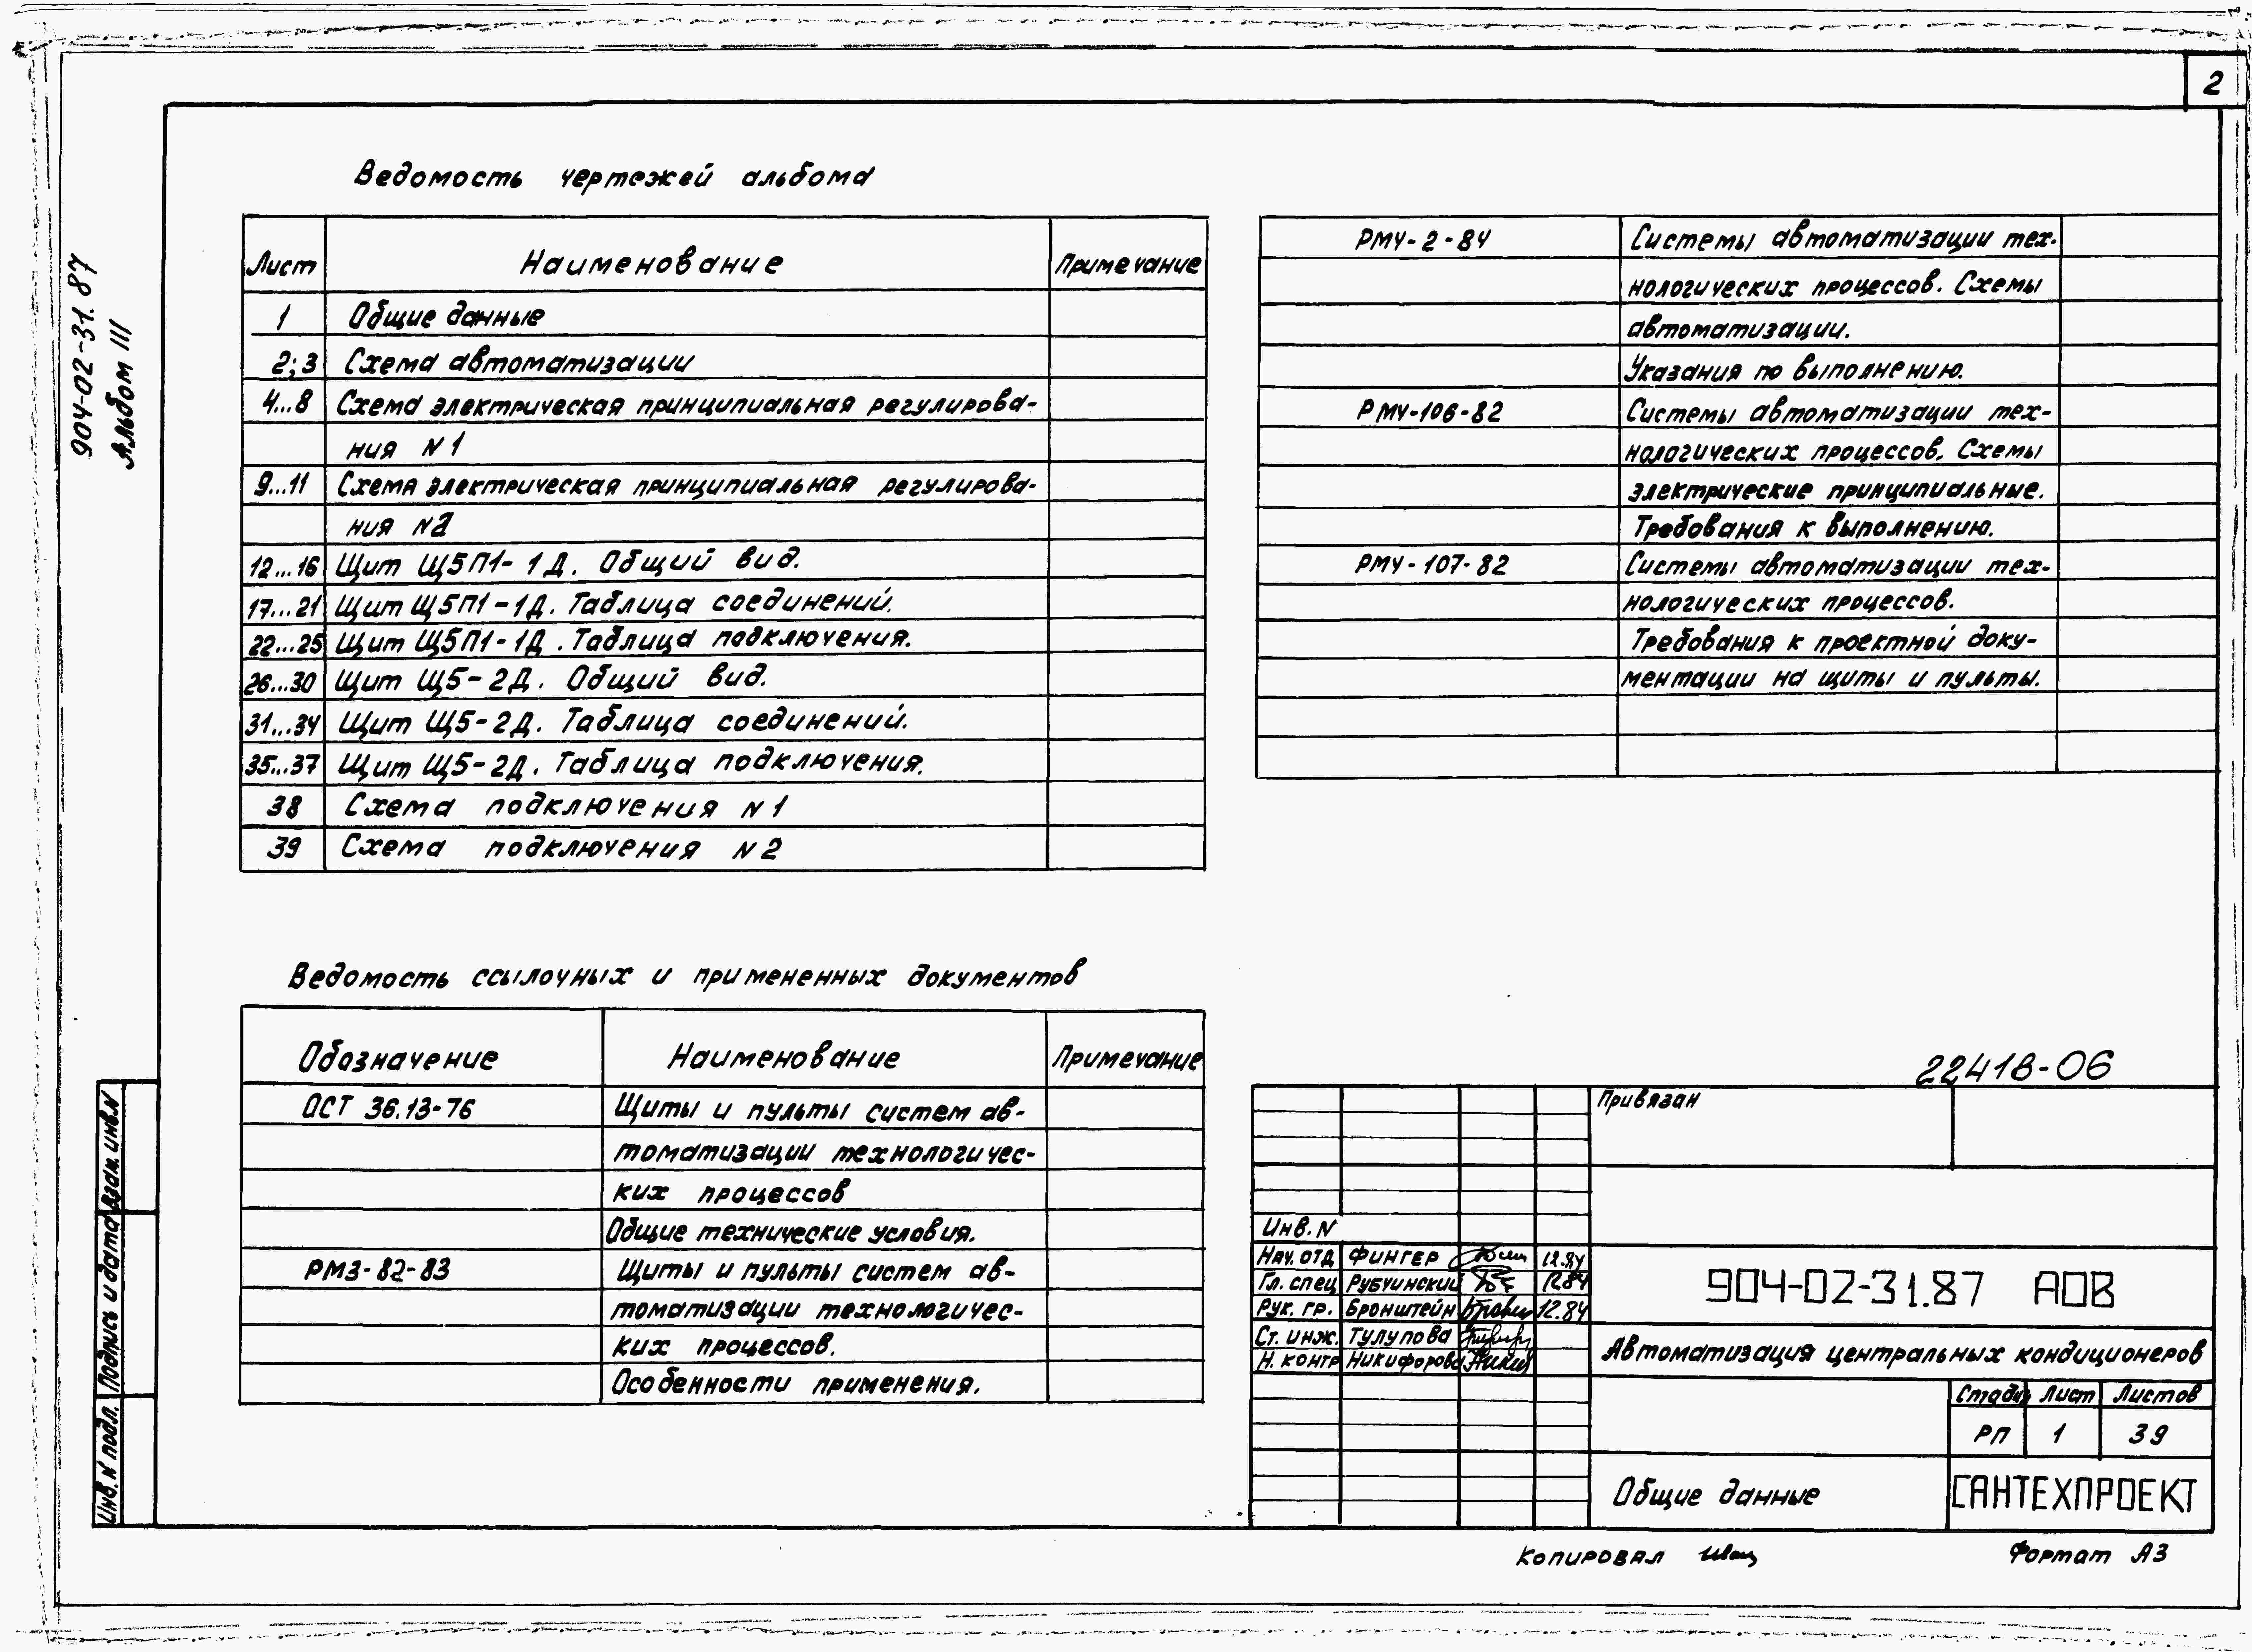 2
904-02-31.87
Альбом III
Ведомость чертежей альбома
Лист Наименование Примечание
1 Общие данные
2;3 Схема автоматизации
4...8 Схема электрическая принципиальная регулирова-
ния N1
9...11 Схема электрическая принципиальная регулирова-
ния N2
12...16 Щит Щ5П1-1Д. Общий вид.
17...21 Щит Щ5П1-1Д. Таблица соединений.
22...25 Щит Щ5П1-1Д. Таблица подключения.
26...30 Щит Щ5-2Д. Общий вид.
31...34 Щит Щ5-2Д. Таблица соединений.
35...37 Щит Щ5-2Д. Таблица подключения.
38 Схема подключения N1
39 Схема подключения N2
РМ4-2-84 Системы автоматизации тех-
нологических процессов. Схемы
автоматизации.
Указания по выполнению.
РМ4-106-82 Системы автоматизации тех-
нологических процессов. Схемы
электрические принципиальные.
Требования к выполнению.
РМ4-107-82 Системы автоматизации тех-
нологических процессов.
Требования к проектной доку-
ментации на щиты и пульты.
Ведомость ссылочных и примененных документов
Обозначение Наименование Примечание
ОСТ 36.13-76 Щиты и пульты систем ав-
томатизации технологичес-
ких процессов
Общие технические условия.
РМ3-82-83 Щиты и пульты систем ав-
томатизации технологичес-
ких процессов.
Особенности применения.
22418-06
Привязан
Инв. N
Нач. отд. ФИНГЕР 12.84
Гл. спец РУБЧИНСКИЙ 12.84
Рук. гр. БРОНШТЕЙН 12.84
Ст. инж. ТУЛУПОВА
Н. контр НИКИФОРОВА
904-02-31.87 АОВ
Автоматизация центральных кондиционеров
Стадия Лист Листов
РП 1 39
Общие данные
САНТЕХПРОЕКТ
Копировал
Формат А3
Взам. инв. N
Подпись и дата
Инв. N подл.